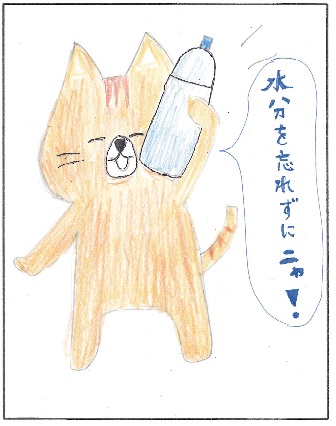 水分を忘れずにニャ!